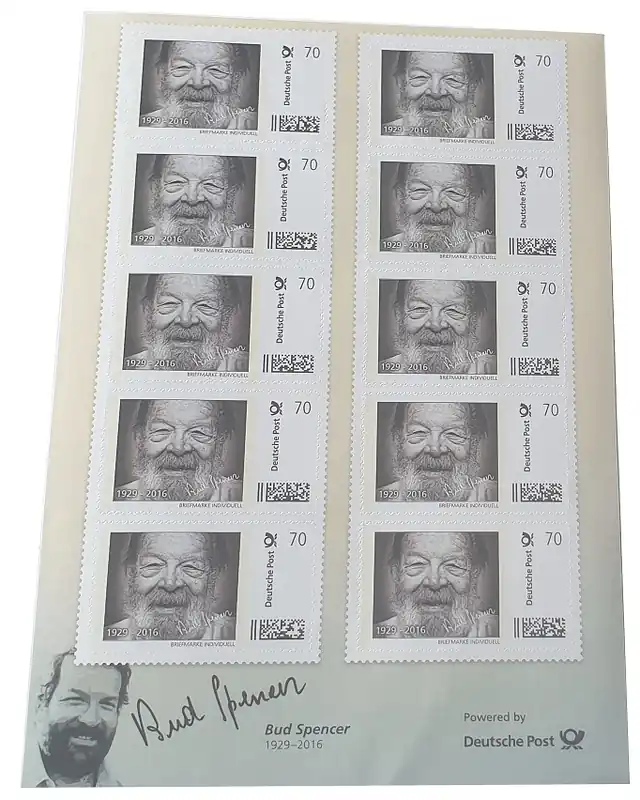 Deutsche Post
70
1929–2016
Bud Spencer
BRIEFMARKE INDIVIDUELL
Deutsche Post
70
1929–2016
Bud Spencer
BRIEFMARKE INDIVIDUELL
Deutsche Post
70
1929–2016
Bud Spencer
BRIEFMARKE INDIVIDUELL
Deutsche Post
70
1929–2016
Bud Spencer
BRIEFMARKE INDIVIDUELL
Deutsche Post
70
1929–2016
Bud Spencer
BRIEFMARKE INDIVIDUELL
Deutsche Post
70
1929–2016
Bud Spencer
BRIEFMARKE INDIVIDUELL
Deutsche Post
70
1929–2016
Bud Spencer
BRIEFMARKE INDIVIDUELL
Deutsche Post
70
1929–2016
Bud Spencer
BRIEFMARKE INDIVIDUELL
Deutsche Post
70
1929–2016
Bud Spencer
BRIEFMARKE INDIVIDUELL
Deutsche Post
70
1929–2016
Bud Spencer
BRIEFMARKE INDIVIDUELL
Bud Spencer
Bud Spencer
1929–2016
Powered by
Deutsche Post